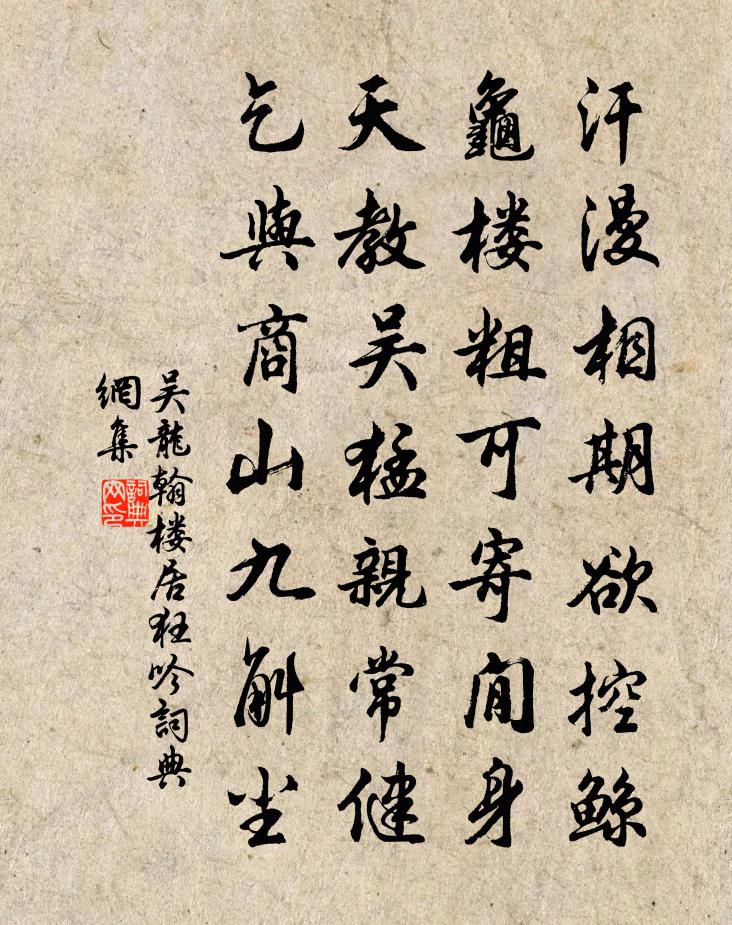 汗漫相期欲控鲸
龜楼粗可寄閒身
天教吴猛親常健
乞與商山九斛尘
吴龍翰楼居狂吟詞典
網集
詞典
网印